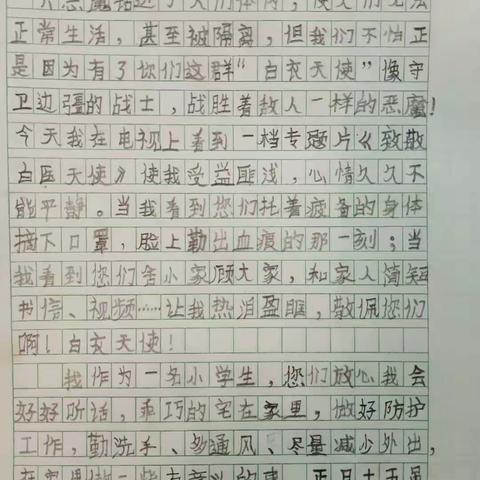 正常生活，甚至被隔离，但我们不怕正
是因为有了你们这群"白衣天使"像守
卫边疆的战士，战胜着敌人一样的恶魔！
今天我在电视上看到一档专题片《致敬
白医天使》使我受益匪浅，心情久久不
能平静。当我看到您们托着疲备的身体
摘下口罩，脸上勒出血痕的那一刻；当
我看到您们舍小家顾大家，和家人简短
书信、视频……让我热泪盈眶，敬佩您们
啊！白衣天使！
我作为一名小学生，您们放心我会
好好听话，乖巧的宅在家里，做好防护
工作，勤洗手、多通风、尽量减少外出，